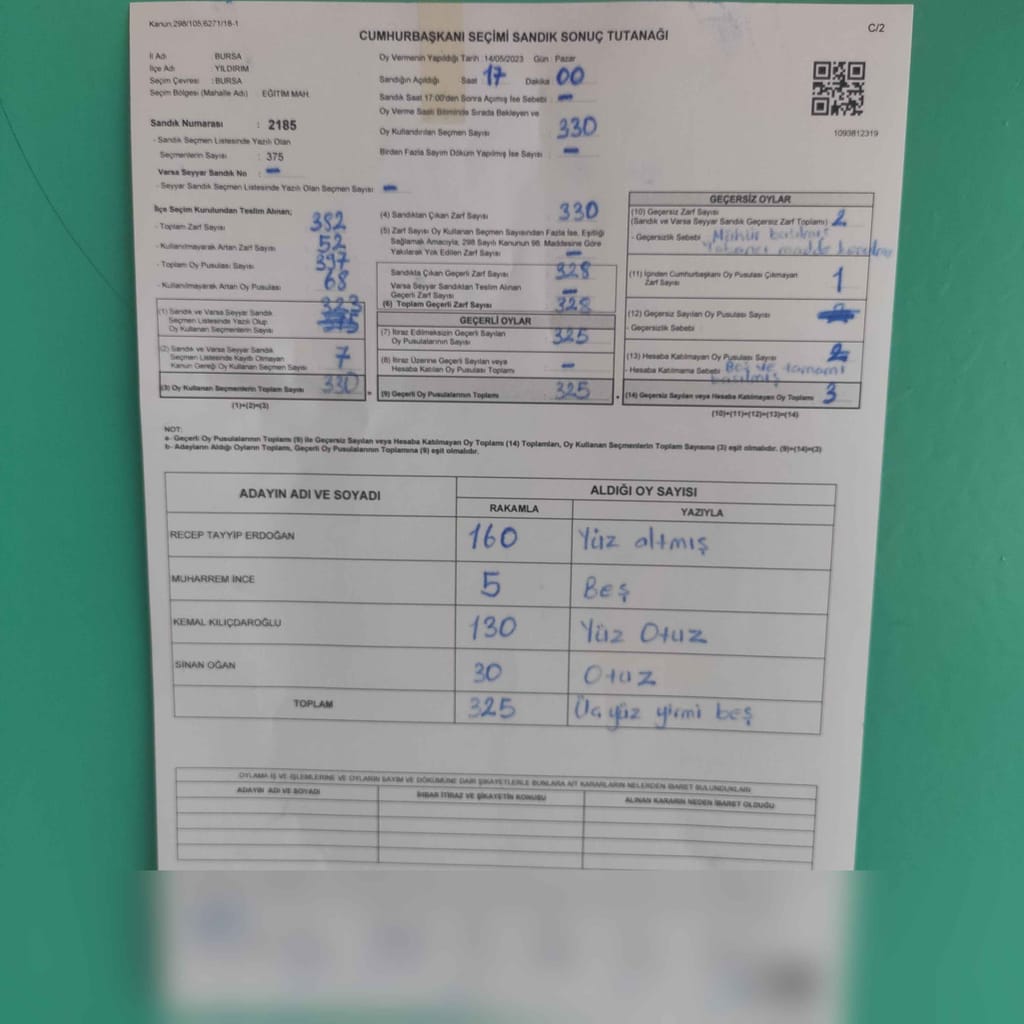 Kanun 298/105,6271/18-1
C/2
CUMHURBAŞKANI SEÇİMİ SANDIK SONUÇ TUTANAĞI
İl Adı : BURSA
İlçe Adı : YILDIRIM
Seçim Çevresi : BURSA
Seçim Bölgesi (Mahalle Adı) : EĞİTİM MAH.
Sandık Numarası : 2185
- Sandık Seçmen Listesinde Yazılı Olan
Seçmenlerin Sayısı : 375
Varsa Seyyar Sandık No : -
- Seyyar Sandık Seçmen Listesinde Yazılı Olan Seçmen Sayısı -
Oy Vermenin Yapıldığı Tarih 14/05/2023 Gün Pazar
Sandığın Açıldığı Saat 17 Dakika 00
Sandık Saat 17:00'den Sonra Açımış İse Sebebi : -
Oy Verme Saati Bitiminde Sırada Bekleyen ve
Oy Kullandırılan Seçmen Sayısı 330
Birden Fazla Sayım Döküm Yapılmış İse Sayısı -
1093812319
İlçe Seçim Kurulundan Teslim Alınan;
- Toplam Zarf Sayısı 382
- Kullanılmayarak Artan Zarf Sayısı 52
- Toplam Oy Pusulası Sayısı 397
- Kullanılmayarak Artan Oy Pusulası 68
(1) Sandık ve Varsa Seyyar Sandık
Seçmen Listesinde Yazılı Olup
Oy Kullanan Seçmenlerin Sayısı 323
(2) Sandık ve Varsa Seyyar Sandık
Seçmen Listesinde Kayıtlı Olmayan
Kanun Gereği Oy Kullanan Seçmen Sayısı 7
(3) Oy Kullanan Seçmenlerin Toplam Sayısı 330
(1)+(2)=(3)
(4) Sandıktan Çıkan Zarf Sayısı 330
(5) Zarf Sayısı Oy Kullanan Seçmen Sayısından Fazla İse, Eşitliği
Sağlamak Amacıyla, 298 Sayılı Kanunun 98. Maddesine Göre
Yakılarak Yok Edilen Zarf Sayısı -
Sandıkta Çıkan Geçerli Zarf Sayısı 328
Varsa Seyyar Sandıktan Teslim Alınan
Geçerli Zarf Sayısı -
(6) Toplam Geçerli Zarf Sayısı 328
GEÇERLİ OYLAR
(7) İtiraz Edilmeksizin Geçerli Sayılan
Oy Pusulalarının Sayısı 325
(8) İtiraz Üzerine Geçerli Sayılan veya
Hesaba Katılan Oy Pusulası Toplamı -
(9) Geçerli Oy Pusulalarının Toplamı 325
GEÇERSİZ OYLAR
(10) Geçersiz Zarf Sayısı
(Sandık ve Varsa Seyyar Sandık Geçersiz Zarf Toplamı) 2
- Geçersizlik Sebebi Mühür
Yabancı madde
(11) İçinden Cumhurbaşkanı Oy Pusulası Çıkmayan
Zarf Sayısı 1
(12) Geçersiz Sayılan Oy Pusulası Sayısı
- Geçersizlik Sebebi
(13) Hesaba Katılmayan Oy Pusulası Sayısı 2
- Hesaba Katılmama Sebebi Boş ve tamamı
basılmış
(14) Geçersiz Sayılan veya Hesaba Katılmayan Oy Toplamı 3
(10)+(11)+(12)+(13)=(14)
NOT:
a- Geçerli Oy Pusulalarının Toplamı (9) ile Geçersiz Sayılan veya Hesaba Katılmayan Oy Toplamı (14) Toplamları, Oy Kullanan Seçmenlerin Toplam Sayısına (3) eşit olmalıdır. (9)+(14)=(3)
b- Adayların Aldığı Oyların Toplamı, Geçerli Oy Pusulalarının Toplamına (9) eşit olmalıdır.
ADAYIN ADI VE SOYADI ALDIĞI OY SAYISI
RAKAMLA YAZIYLA
RECEP TAYYİP ERDOĞAN 160 Yüz altmış
MUHARREM İNCE 5 Beş
KEMAL KILIÇDAROĞLU 130 Yüz Otuz
SİNAN OĞAN 30 Otuz
TOPLAM 325 Üçyüz yirmi beş
OYLAMA İŞ VE İŞLEMLERİNE VE OYLARIN SAYIM VE DÖKÜMÜNE DAİR ŞİKAYETLERLE BUNLARA AİT KARARLARIN NELERDEN İBARET BULUNDUKLARI
ADAYIN ADI VE SOYADI İHBAR İTİRAZ VE ŞİKAYETİN KONUSU ALINAN KARARIN NEDEN İBARET OLDUĞU